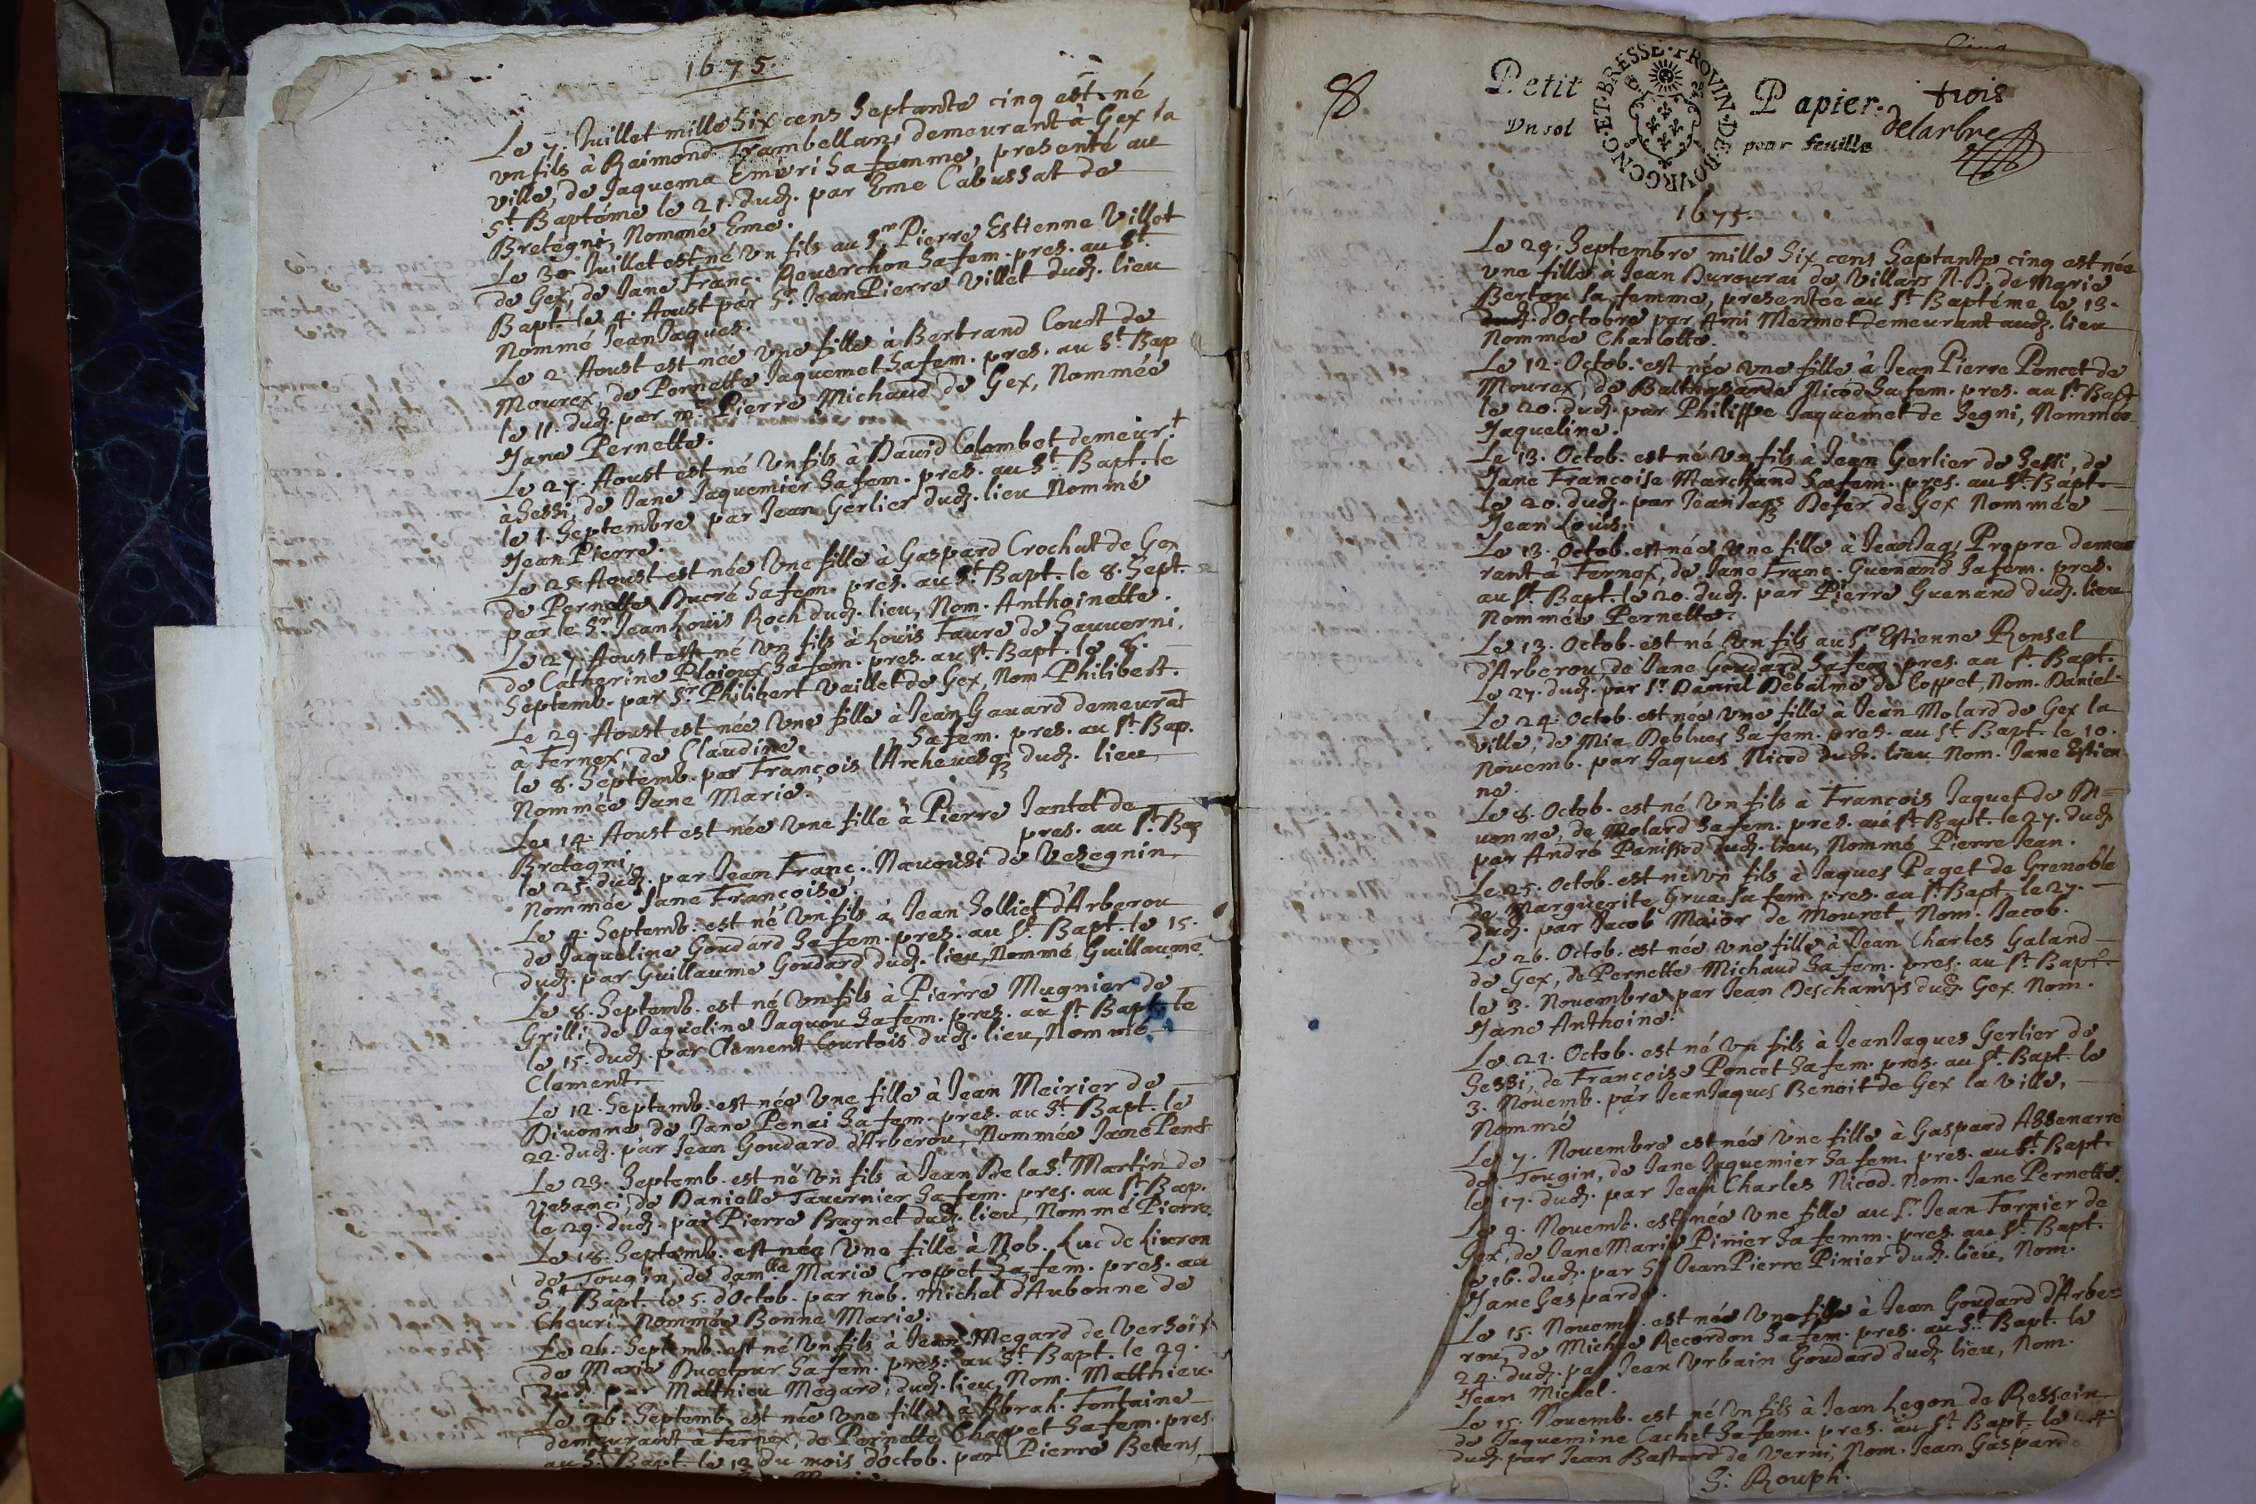 1675.
Le 7. Juillet mille Six cens Septante cinq est né
vn fils à Raimond Trambellan, demeurant à Gex la
ville, de Jaquema Emeri Sa femme, presenté au
St. Baptéme le 21. dud. par Eme Cabussat de
Bretegni, Nommé Eme.
Le 30. Juillet est né Vn fils au Sr. Pierre Estienne Villet
de Gex, de Jane Franc. Reuerchon Sa fem. pres. au St.
Bapt. le 4. Aoust par Sr. Jean Pierre Villet dud. lieu
Nommé Jean Jaques.
Le 2. Aoust est née Vne fille à Bertrand Coust de
Mourex, de Pernette Jaquemet Sa fem. pres. au St. Bap
le 11. dud. par mre. Pierre Michaud de Gex, Nommée
Jane Pernette.
Le 27. Aoust est né Vn fils à Dauid Colombet demeurt
à Sessi, de Jane Jaquemier Sa fem. pres. au St. Bapt. le
le 1. Septembre par Jean Gerlier dud. lieu Nommé
Jean Pierre.
Le 25. Aoust est née Vne fille à Gaspard Crochat de Gex
de Pernette Ducré Sa fem. pres. au St. Bapt. le 8. Sept.
par le Sr. Jean Louïs Roch dud. lieu, Nom. Anthoinette.
Le 27. Aoust est né Vn fils à Louïs Faure de Sauuerni,
de Catherine Sa fem. pres. au St. Bapt. le 8.
Septemb. par Sr. Philibert Vaillet de Gex, Nom Philibert.
Le 29. Aoust est née Vne fille à Jean Gauard demeurāt
à Fernex, de Claudine, Sa fem. pres. au St. Bap.
le 8. Septemb. par François l'Archeuesq dud. lieu
Nommée Jane Marie.
Le 14. Aoust est née Vne fille à Pierre Jantet de
Bretegni, pres. au St. Bap
le 25. dud. par Jean Franc. Nauoisi de Vesegnin
Nommée Jane Françoise.
Le 4. Septemb. est né Vn fils à Jean Sollief d'Arberou
de Jaqueline Goudard Sa fem. pres. au St. Bapt. le 15.
dud. par Guillaume Goudard dud. lieu, Nommé Guillaume.
Le 8. Septemb. est né Vn fils à Pierre Mugnier de
Grilli, de Jaqueline Jaquou Sa fem. pres. au St Bapt. le
le 15. dud. par Clement Courtois dud. lieu, Nommé
Clement.
Le 12. Septemb. est née Vne fille à Jean Meirier de
Diuonne de Jane Penai Sa fem. pres. au St. Bapt. le
22. dud. par Jean Goudard d'Arberou, Nommée Jane Pent
Le 23. Septemb. est né Vn fils à Jean De la St. Martin de
Vesanci, de Danielle Tauernier Sa fem. pres. au St. Bap.
le 29. dud. par Pierre Bugnet dud. lieu, Nommé Pierre
Le 18. Septemb. est née Vne fille à Nob. Luc de Liuron
de Tougin, de damlle. Marie Croppet Sa fem. pres. au
St. Bapt. le 5. d'Octob. par nob. Michel d'Aubonne de
Cheuri. Nommée Bonne Marie.
Le 26. Septemb. est né Vn fils à Jean Megard de Versoix
de Marie Ducetour Sa fem. pres. au St. Bapt. le 29.
dud. par Matthieu Megard, dud. lieu, Nom. Matthieu.
Le 26. Septemb. est née Vne fille à Abrah. Fontaine
demeurant à Fernex, de Pernette Chapet Sa fem. pres
au S. Bapt. le 13 du mois d'Octob. par Pierre Betens
98
Petit Papier.
Vn sol pour feuille
PROVIN. DE BOVRGONG. ET BRESSE.
trois
Delarbre
1675.
Le 29. Septembre mille Six cens Septante cinq est née
vne fille à Jean Durourai de Villars N.D. de Marie
Bertou sa femme, presentée au St. Baptéme le 13.
d'Octobre par Ami Mermet demeurant aud. lieu
Nommée Charlotte.
Le 12. Octob. est née vne fille à Jean Pierre Poncet de
Mourex, de Balthasarde Nicod Sa fem. pres. au St. Bapt
le 20. dud. par Philippe Jaquemet de Segni, Nommée
Jaqueline.
Le 13. Octob. est né Vn fils à Jean Gerlier de Sessi, de
Jane Françoise Marchand Sa fem. pres. au St. Bapt.
le 20. dud. par Jean Jaqs Defer de Gex Nommée
Jean Louis.
Le 13. Octob. est née Vne fille à Jean Jaq. Propre demeu
rant à Fernex, de Jane Franc. Guenand Sa fem. pres.
au St. Bapt. le 20. dud. par Pierre Guenand dud. lieu
Nommée Pernette.
Le 13. Octob. est né Vn fils au Sr. Estienne Ronsel
d'Arberou, de Jane Goudard Sa fem. pres. au St. Bapt.
Le 27. dud. par Sr. Daniel Debalme de Coppet, Nom. Daniel.
Le 24. Octob. est née Vne fille à Jean Molard de Gex la
ville, de Mia Deblues Sa fem. pres. au St Bapt. le 10.
Nouemb. par Jaques Nicod dud. lieu Nom. Jane Estien
ne.
Le 8. Octob. est né Vn fils à François Jaquet de Di=
uonne, de Molard Sa fem. pres. au St. Bapt. le 27. dud.
par André Panissod dud. lieu, Nommé Pierre Jean.
Le 25. Octob. est né Vn fils à Jaques Paget de Grenoble
de Marguerite Grua Sa fem. pres. au St. Bapt. le 27.
dud. par Jacob Maior de Mouret, Nom. Jacob.
Le 26. Octob. est née vne fille à Jean Charles Galand
de Gex, de Pernette Michaud Sa fem. pres. au St. Bapt.
le 3. Nouembre par Jean Deschamps dud. Gex Nom.
Jane Anthoine.
Le 21. Octob. est né Vn fils à Jean Jaques Gerlier de
Sessi, de Françoise Poncet Sa fem. pres. au St. Bapt. le
3. Nouemb. par Jean Jaques Benoit de Gex la ville,
Nommé
Le 7. Nouembre est née Vne fille à Gaspard Assenarre
de Tougin, de Jane Jaquemier Sa fem. pres. au St. Bapt.
le 17. dud. par Jean Charles Nicod. Nom. Jane Pernette.
Le 9. Nouemb. est née Vne fille au Sr. Jean Fornier de
Gex, de Jane Marie Pinier Sa femm. pres. au St. Bapt.
le 16. dud. par Sr Jean Pierre Pinier dud. lieu, Nom.
Jane Gasparde.
Le 15. Nouemb. est née Vne fille à Jean Goudard d'Arbe=
rou, de Michée Recordon Sa fem. pres. au St. Bapt. le
24. dud. par Jean Vrbain Goudard dud. lieu, Nom.
Jean Michel.
Le 15. Nouemb. est né Vn fils à Jean Legon de Ressein
de Jaquemine Cachet Sa fem. pres. au St. Bapt. le 24.
dud. par Jean Bastard de Verni, Nom. Jean Gaspard
S: Rouph.